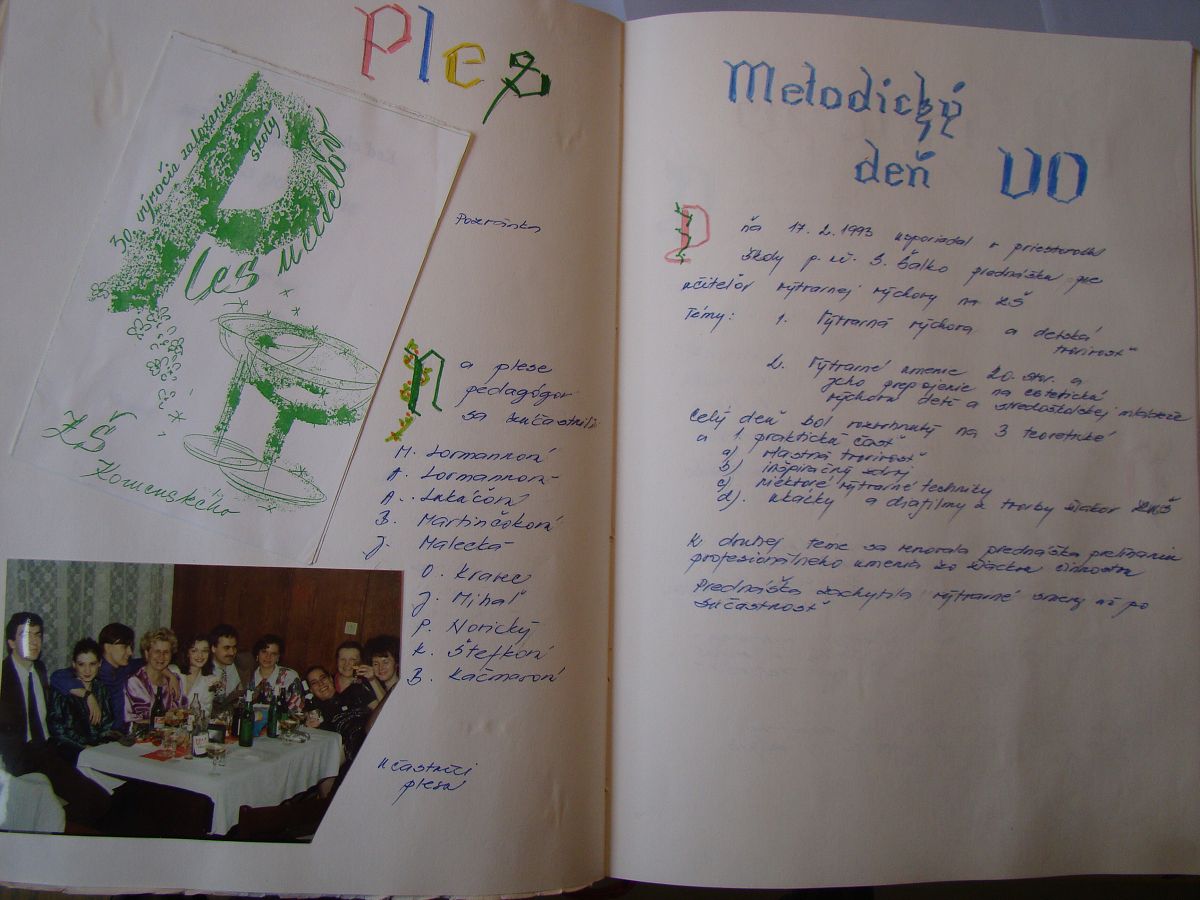 Ples
30. výročia založenia
školy
Ples učiteľov
ZŠ
Komenského
Pozvánka
Na plese
pedagógov
sa zúčastnili
M. Lormannová
A. Lormannová
A. Lukáčová
B. Martinčoková
J. Malecká
O. Kravec
J. Mihaľ
P. Novický
K. Štefková
B. Kačmarová
Účastníci
plesu
Metodický
deň VO
Dňa 17. 2. 1993 usporiadal v priestoroch
školy p. uč. S. Šalko prednášku pre
učiteľov výtvarnej výchovy na ZŠ
Témy: 1. Výtvarná výchova a detská
tvorivosť
2. Výtvarné umenie 20. stor. a
jeho prepojenie na estetickú
výchovu detí a stredoškolskej mládeže
Celý deň bol rozvrhnutý na 3 teoretické
a 1. praktickú časť
a) vlastná tvorivosť
b) inšpiračný zdroj
c) niektoré výtvarné techniky
d). ukážky a diafilmy z tvorby žiakov
K druhej téme sa venovala prednáška prelínaniu
profesionálneho umenia so žiackou činnosťou
Prednáška zachytila výtvarné smery až po
súčastnosť